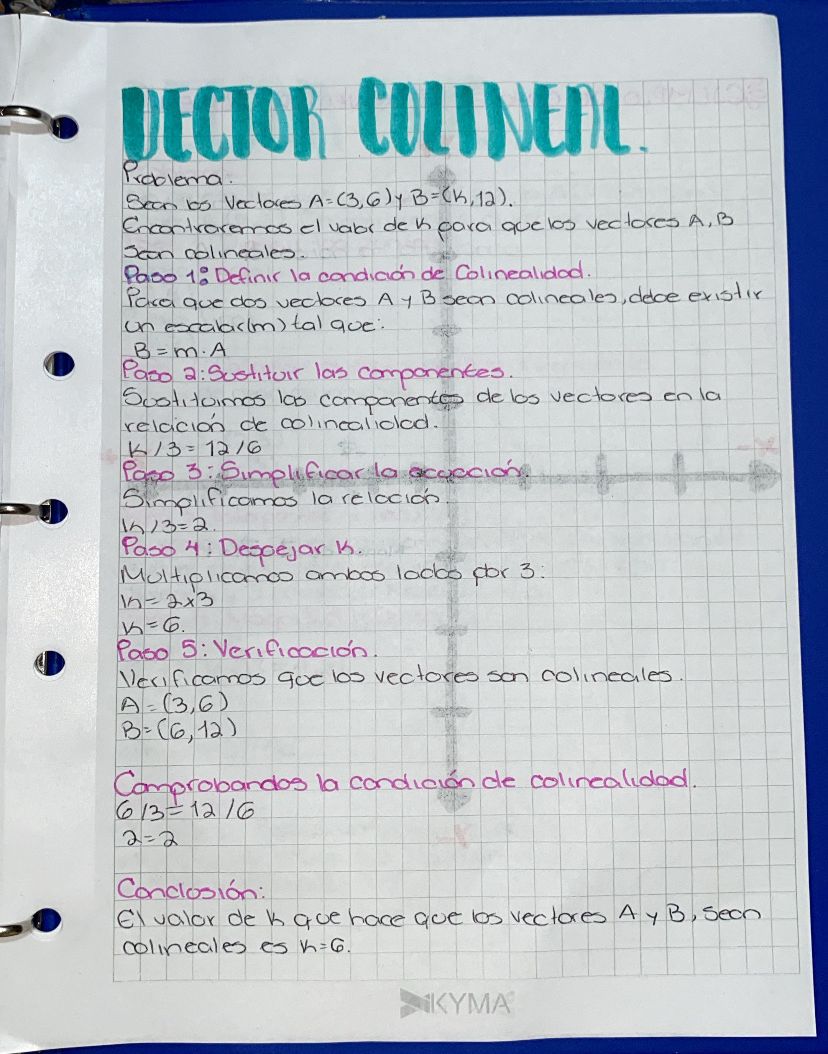 VECTOR COLINEAL.
Problema.
Sean los Vectores A=(3,6) y B=(k,12).
Encontraremos el valor de k para que los vectores A,B
Sean colineales.
Paso 1: Definir la condición de Colinealidad.
Para que dos vectores A y B sean colineales, debe existir
un escalar(m) tal que:
B=m·A
Paso 2: Sustituir las componentes.
Sustituimos las componentes de los vectores en la
relación de colinealidad.
k/3=12/6
Paso 3: Simplificar la ecuación
Simplificamos la relación.
k/3=2.
Paso 4: Despejar k.
Multiplicamos ambos lados por 3:
k=2x3
k=6.
Paso 5: Verificación.
Verificamos que los vectores son colineales.
A=(3,6)
B=(6,12)
Comprobandos la condición de colinealidad.
6/3=12/6
2=2
Conclusión:
El valor de k que hace que los vectores A y B, sean
colineales es k=6.
KYMA